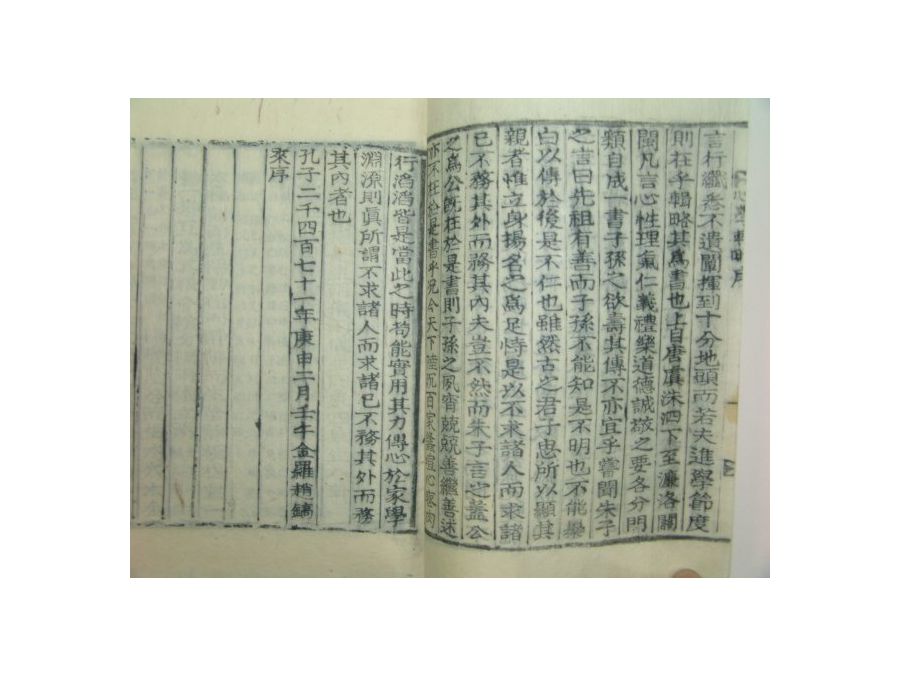 言行纖悉不遺闡揮到十分地頭而若夫進學節度
則在乎輯略其爲書也上自唐虞洙泗下至濂洛關
閩凡言心性理氣仁義禮樂道德誠敬之要各分門
類自成一書子孫之欲壽其傳不亦宜乎嘗聞朱子
之言曰先祖有善而子孫不能知是不明也不能𭥦
白以傳於後是不仁也雖然古之君子思所以顯其
親者惟立身揚名之爲足恃是以不求諸人而求諸
已不務其外而務其內夫豈不然而朱子言之蓋公
之爲公旣在於是書則子孫之夙宵兢兢善繼善述
亦不在於是書乎況今天下陸沉百家
行滔滔皆是當此之時苟能實用其力傳心於家學
淵源則眞所謂不求諸人而求諸已不務其外而務
其內者也
孔子二千四百七十一年庚申二月壬午金羅趙鎬
來序